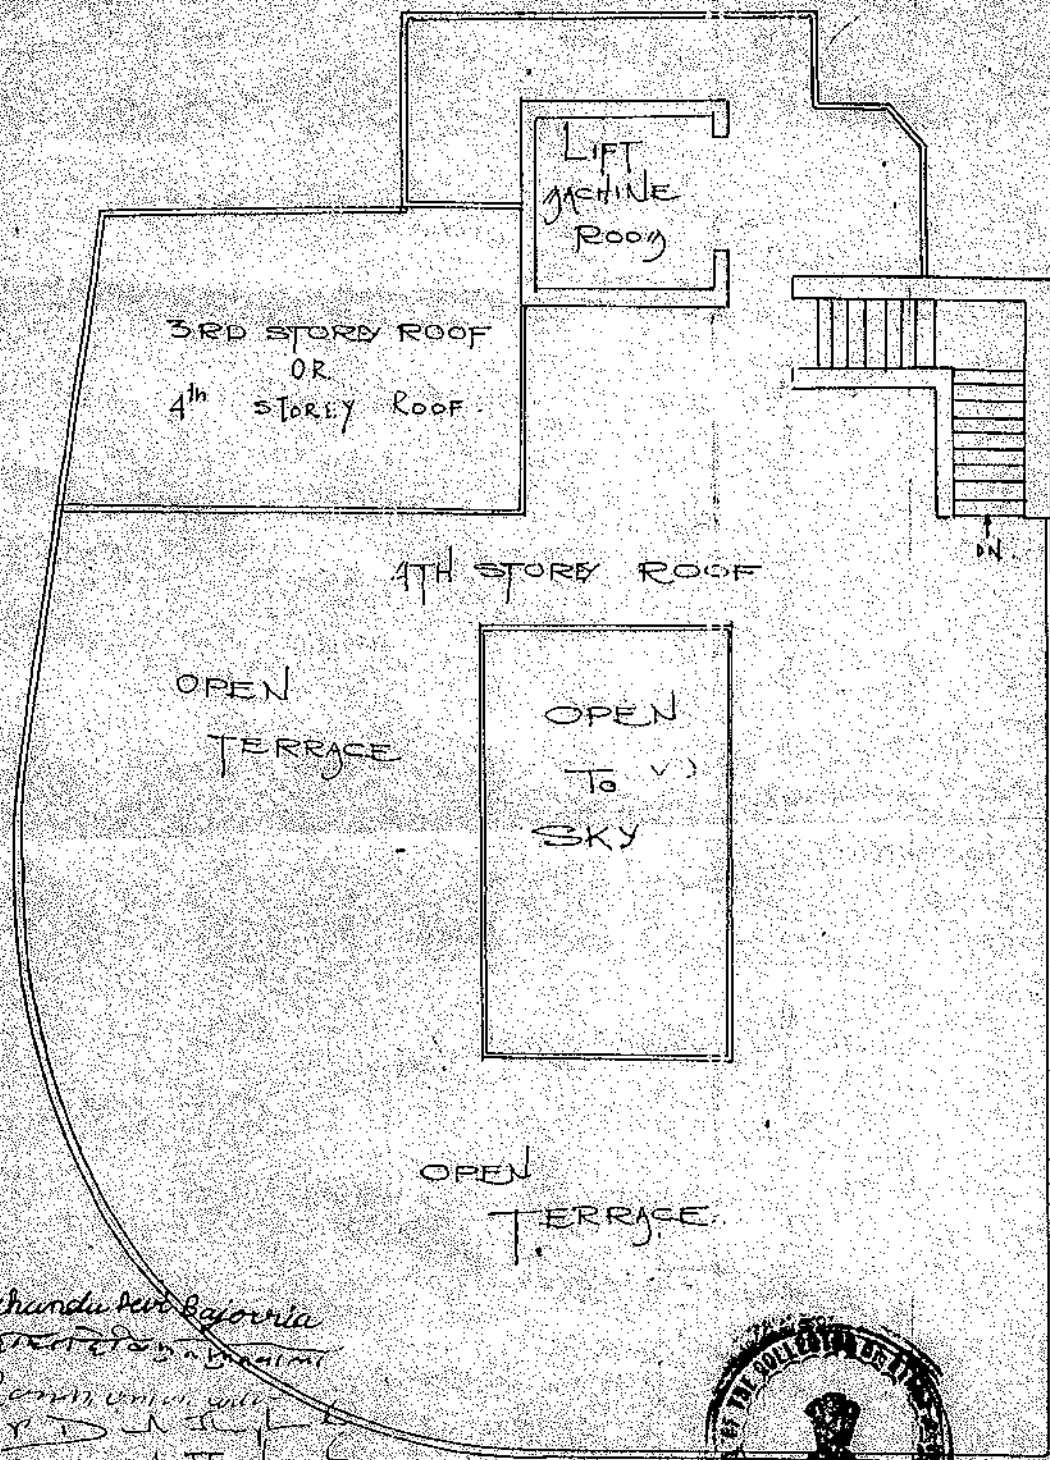 LIFT
MACHINE
ROOM
3RD STOREY ROOF
OR
4th STOREY ROOF.
DN.
4TH STOREY ROOF
OPEN
TERRACE
OPEN
To
SKY
OPEN
TERRACE.
Bajorria
OF THE COLLECTOR OF